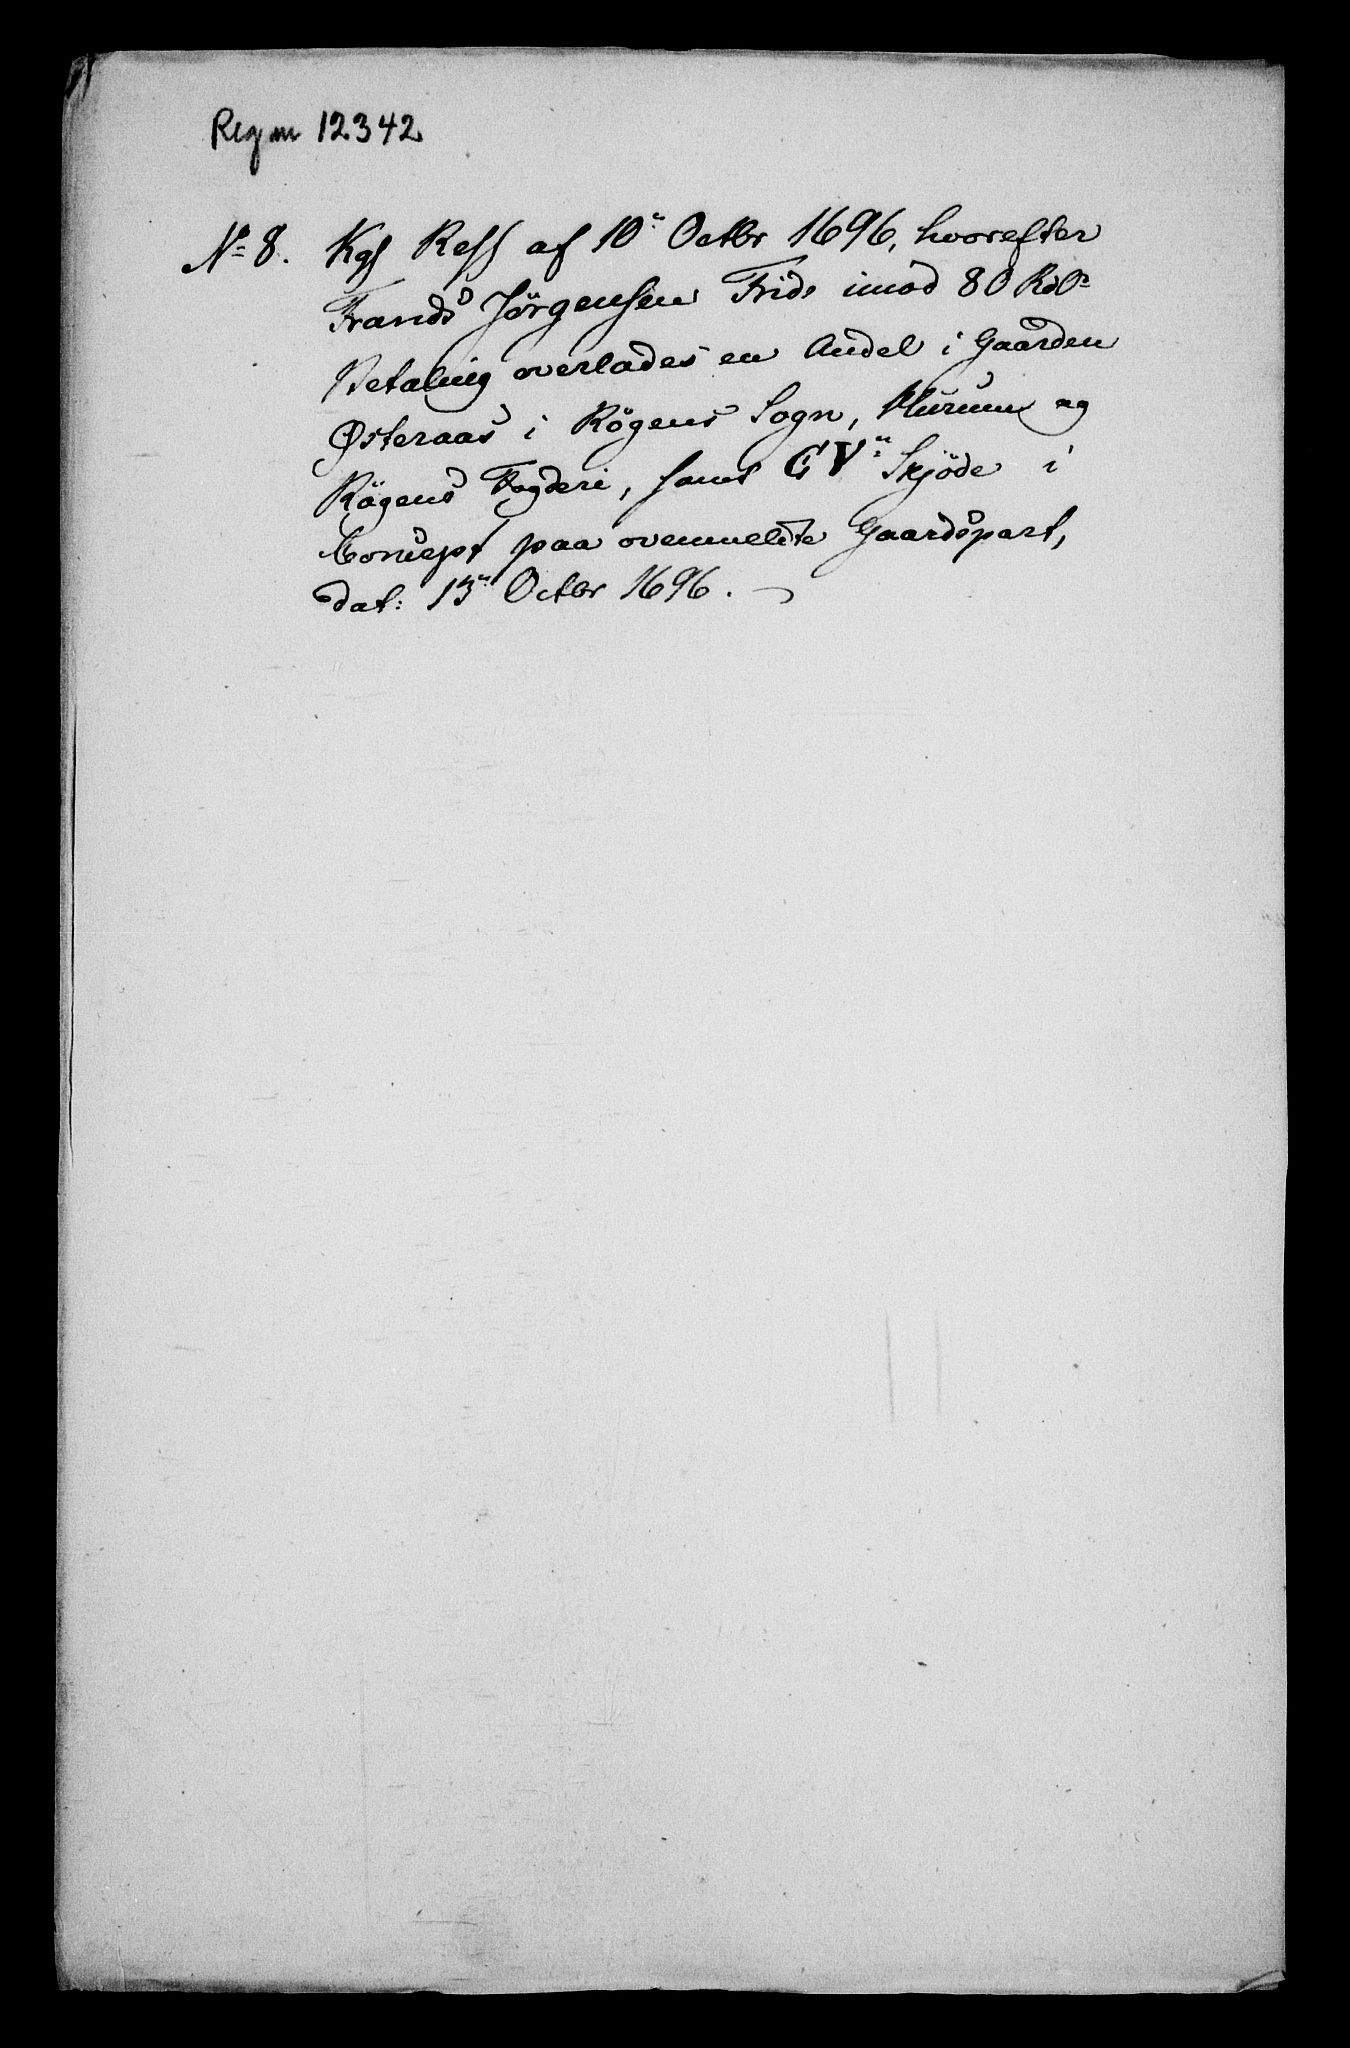 Reg nr 12342
No 8. Kgl Ress af 10n Octbr 1696, hvorefter
Frands Jørgensen Friis imod 80 Rdlrs
Betaling overlades en Andel i Gaarden
Østeraas i Røgens Sogn, Hurums og
Røgens Fogderi, samt CVn Skjøde i
Concept paa ovenmeldte Gaardspart,
dat: 13n Octbr 1696.